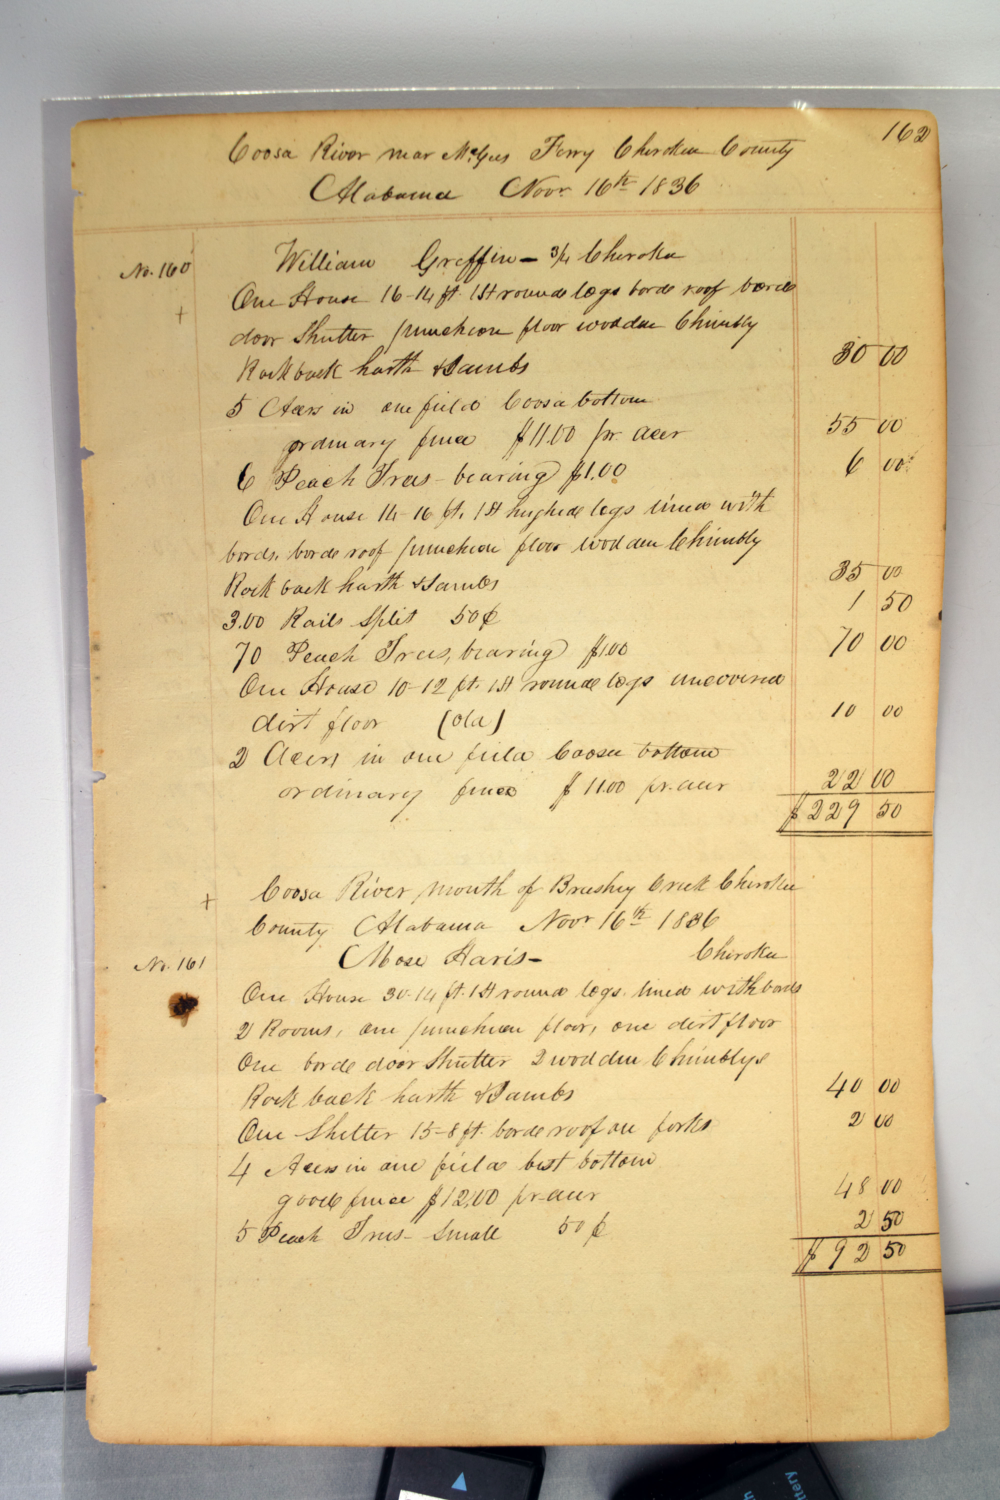 162
Coosa River near McGees Ferry Cherokee County
Alabama Novr. 16th 1836
No. 160 William Griffin - 3/4 Cherokee
+ One House 16-14 ft. 1st round logs borde roof borde
door Shutter puncheon floor wooden Chimbly
Rock back harth & Jambs 30 00
5 Acers in one field Coosa bottom
ordinary fence $11.00 pr. acer 55 00
6 Peach Trees - bearing $1.00 6 00
One House 14-16 ft. 1st hughede logs lined with
bords, borde roof puncheon floor wodden Chimbly
Rock back harth & Jambs 35 00
3.00 Rails Split 50¢ 1 50
70 Peach Trees, bearing $1.00 70 00
One House 10-12 ft. 1st rounde logs uncovered
dirt floor (Old) 10 00
2 Acers in one field Coosa bottom
ordinary fence $11.00 pr. acer 22 00
$229 50
+ Coosa River mouth of Brushey Creek Cherokee
County Alabama Novr 16th 1836
No. 161 Mose Haris - Cherokee
One House 30-14 ft. 1st round logs. lined with bords
2 Rooms, one puncheon floor, one dirt floor
One borde door Shutter 2 wodden Chimblys
Rock back harth & Jambs 40 00
One Shelter 15-8 ft. borde roof on forks 2 00
4 Acers in one field best bottom
goode fence $12,00 pr. acer 48 00
5 Peach Trees - Small 50¢ 2 50
$92 50
ttery